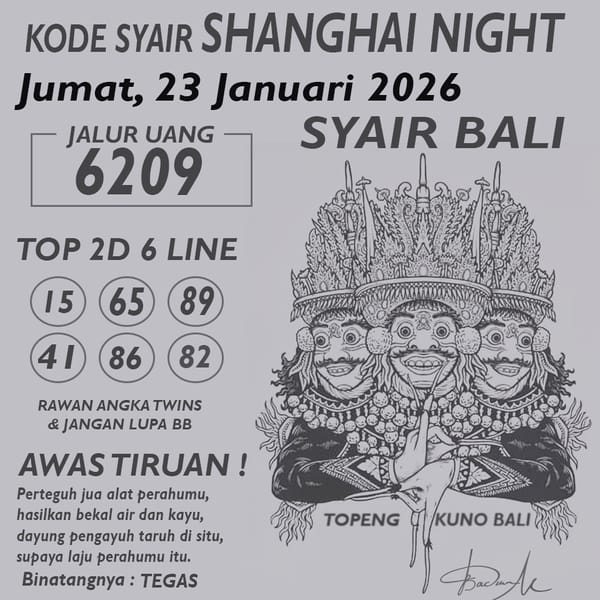 KODE SYAIR SHANGHAI NIGHT
Jumat, 23 Januari 2026
JALUR UANG
6209
SYAIR BALI
TOP 2D 6 LINE
15 65 89
41 86 82
RAWAN ANGKA TWINS
& JANGAN LUPA BB
AWAS TIRUAN !
Perteguh jua alat perahumu,
hasilkan bekal air dan kayu,
dayung pengayuh taruh di situ,
supaya laju perahumu itu.
Binatangnya : TEGAS
TOPENG KUNO BALI